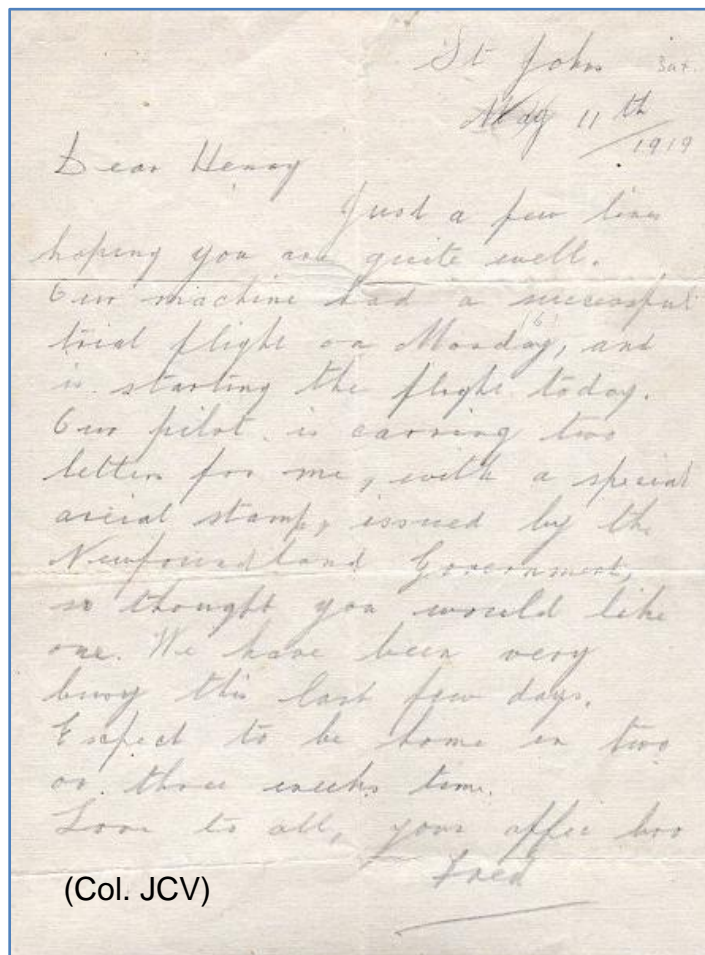 St Johns Sat.
May 11th
1919
Dear Henry
Just a few lines
hoping you are quite well.
Our machine had a successful
trial flight on Monday, (6) and
is starting the flight today.
Our pilot is carring two
letters for me, with a special
aerial stamp, issued by the
Newfoundland Government,
so thought you would like
one. We have been very
busy this last few days.
Expect to be home in two
or three weeks time.
Love to all, your affec bro
Fred
(Col. JCV)